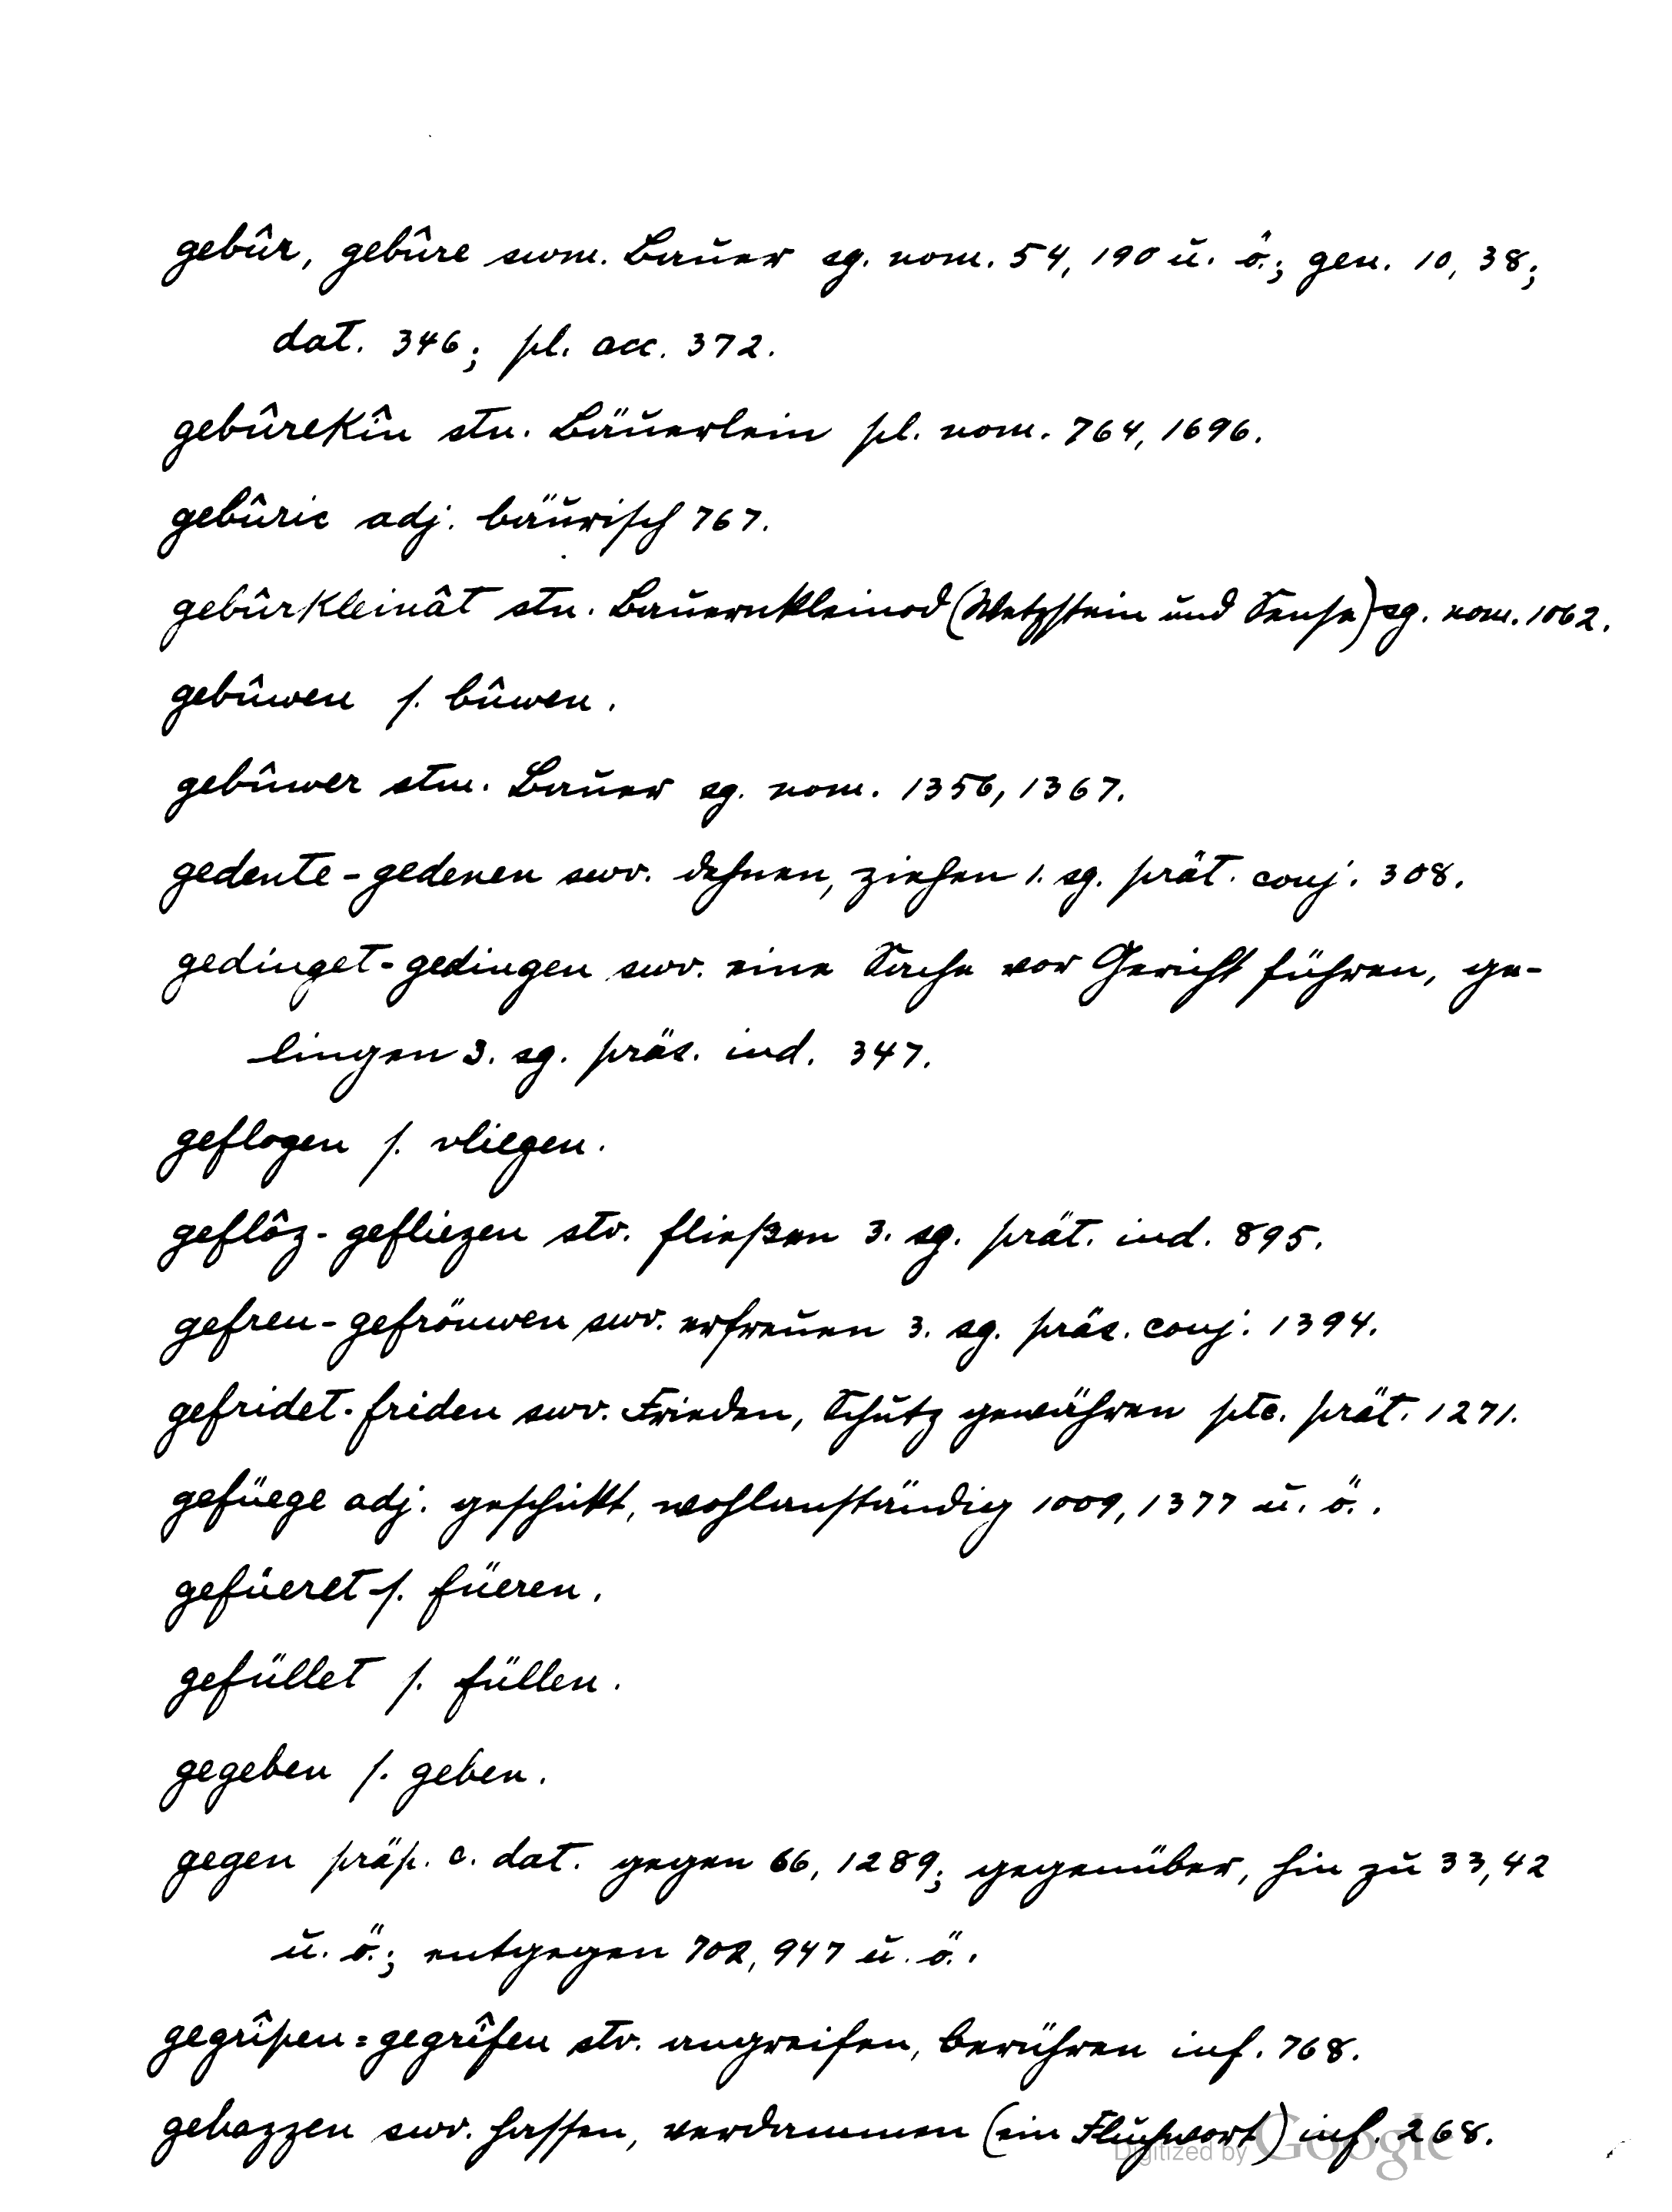 gebûr, gebûre swm. Bauer sg. nom. 54, 190 u. ö.; gen. 10, 38;
dat. 346; pl. acc. 372.
gebûrekîn stn. Bäuerlein pl. nom. 764, 1696.
gebûric adj. bäurisch 767.
gebûrkleinât stn. Bauernkleinod (Wetzstein und Sense) sg. nom. 1062.
gebûwen s. bûwen.
gebûwer stm. Bauer sg. nom. 1356, 1367.
gedente - gedenen swv. dehnen, ziehen 1. sg. prät. conj. 308.
gedinget - gedingen swv. eine Sache vor Gericht führen, ge-
lingen 3. sg. präs. ind. 347.
geflogen s. vliegen.
geflôz - gefliezen stv. fließen 3. sg. prät. ind. 895.
gefreu - gefröuwen swv. erfreuen 3. sg. präs. conj. 1394.
gefridet - friden swv. Frieden, Schutz gewähren ptc. prät. 1271.
gefüege adj. geschikt, wohlanständig 1009, 1377 u. ö..
gefüeret s. füeren.
gefüllet s. füllen.
gegeben s. geben.
gegen präp. c. dat. gegen 66, 1289; gegenüber, hin zu 33, 42
u. ö.; entgegen 702, 947 u. ö..
gegrîpen = gegrîfen stv. angreifen, berühren inf. 768.
gehazzen swv. hassen, verdammen (ein Fluchwort) inf. 268.
Digitized by Google